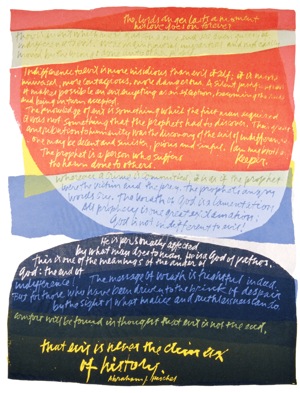 The Lord's anger lasts a moment
his love goes on forever
Indifference to evil is more insidious than evil itself; it is more
universal, more contagious, more dangerous. A silent justification,
it makes possible an evil erupting as an exception becoming the rule
and being in turn accepted.
The knowledge of evil is something which the first man acquired
it was not something that the prophets had to discover. Their great
contribution to humanity was the discovery of the evil of indifference.
one may be decent and sinister, pious and sinful. I am my brother's
Keeper.
The prophet is a person who suffers
the harm done to others
Wherever a crime is committed,
were the victim and the prey. The prophet's angry
words cry. The wrath of God is a lamentation.
All prophecy is one great exclamation:
God is not indifferent to evil!
He is personally affected
by what man does to man, he is a God of pathos.
This is one of the meanings of the anger of
God: the end of
indifference! The message of wrath is frightful indeed.
But for those who have been driven to the brink of despair
by the sight of what malice and ruthlessness can do
comfort will be found in thought that evil is not the end,
that evil is never the climax
of history.
Abraham J Heschel